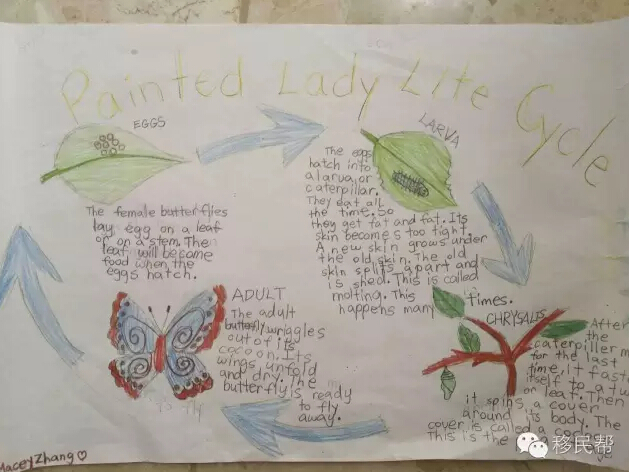 Painted Lady Life Cycle
EGGS
The female butterflies
lay egg on a leaf
or on a stem. The
leaf will become
food when the
eggs hatch.
LARVA
The eggs
hatch into
a larva or
caterpillar.
They eat all
the time. So
they get fat and fat. Its
skin becomes too tight.
A new skin grows under
the old skin. The old
skin splits apart and
is shed. This is called
molting. This
happens many times.
CHRYSALIS
After
the
caterpillar
for the last
time, it
itself to a
or leaf. Then
it spins a cover
around its body. The
cover is called a
This is the
ADULT
The adult
butterfly wriggles
out of its
cocoon. Its
wings unfold
and dry. The
butterfly is ready
to fly
away.
Macey Zhang
移民帮